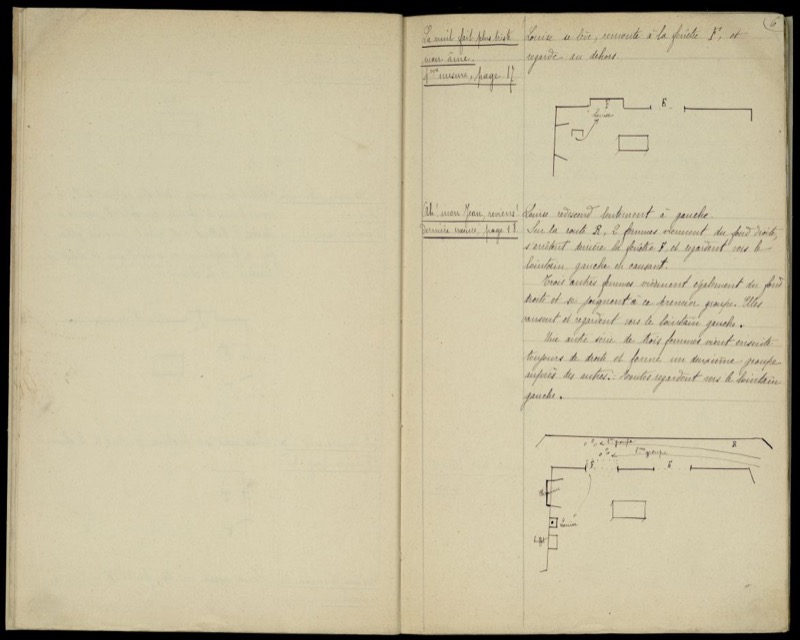 6
La nuit fait plus triste
mon âme.
1ère mesure, page 17
Louise se lève, remonte à la fenêtre F, et
regarde au dehors.
F
E
Louise
Ah! mon Jean, reviens!
Dernière mesure, page 18
Louise redescend lentement à gauche.
Sur la route R, 2 femmes viennent du fond droite,
s'arrêtent derrière la fenêtre F, et regardent vers le
lointain gauche en causant.
Trois autres femmes viennent également du fond
droite et se joignent à ce premier groupe. Elles
causent et regardent vers le lointain gauche.
Une autre série de trois femmes vient ensuite
toujours de droite et forme un deuxième groupe
auprès des autres. - Toutes regardent vers le lointain
gauche.
1er groupe
R
2ème groupe
F
E
Louise
buffet